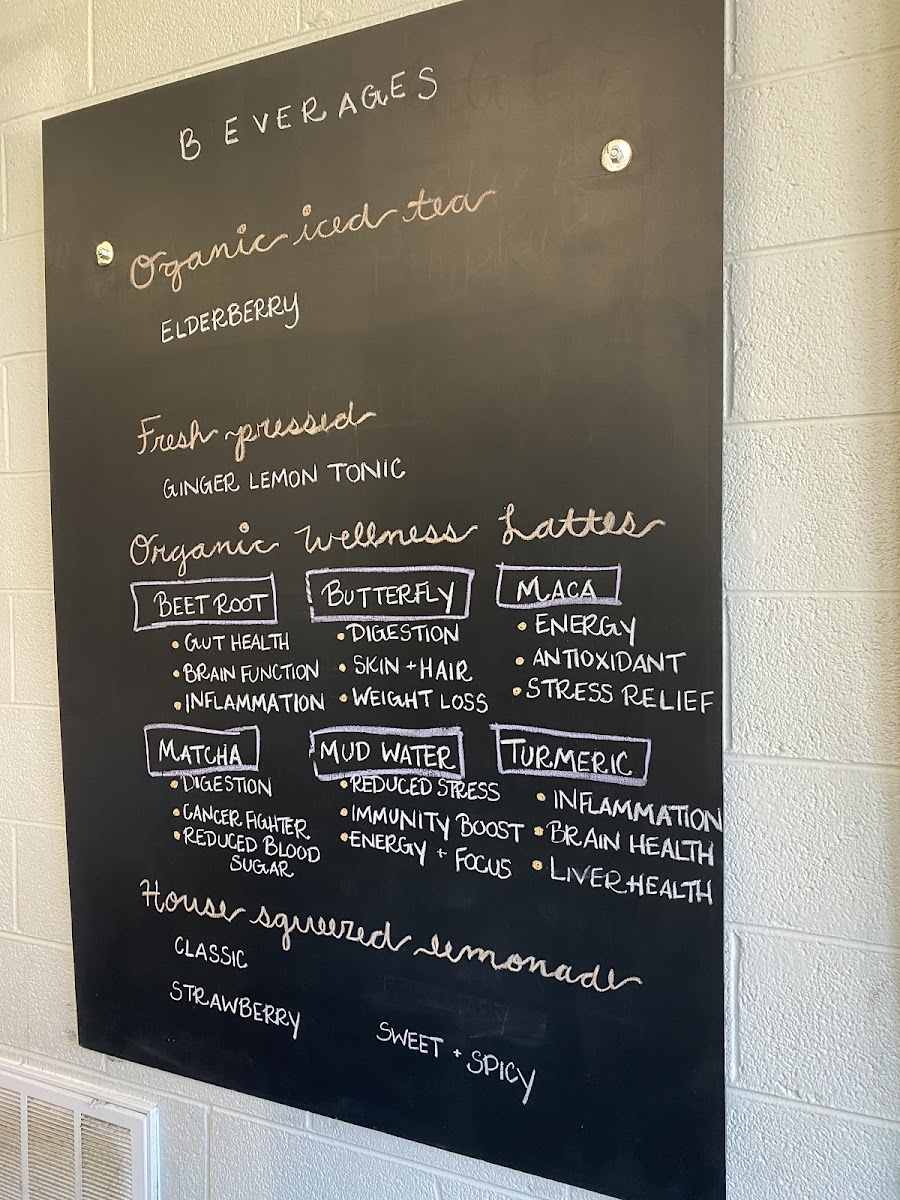 BEVERAGES
Organic iced tea
ELDERBERRY
Fresh pressed
GINGER LEMON TONIC
Organic Wellness Lattes
BEET ROOT
• GUT HEALTH
• BRAIN FUNCTION
• INFLAMMATION
BUTTERFLY
• DIGESTION
• SKIN + HAIR
• WEIGHT LOSS
MACA
• ENERGY
• ANTIOXIDANT
• STRESS RELIEF
MATCHA
• DIGESTION
• CANCER FIGHTER
• REDUCED BLOOD
SUGAR
MUD WATER
• REDUCED STRESS
• IMMUNITY BOOST
• ENERGY + FOCUS
TURMERIC
• INFLAMMATION
• BRAIN HEALTH
• LIVER HEALTH
House squeezed lemonade
CLASSIC
STRAWBERRY
SWEET + SPICY